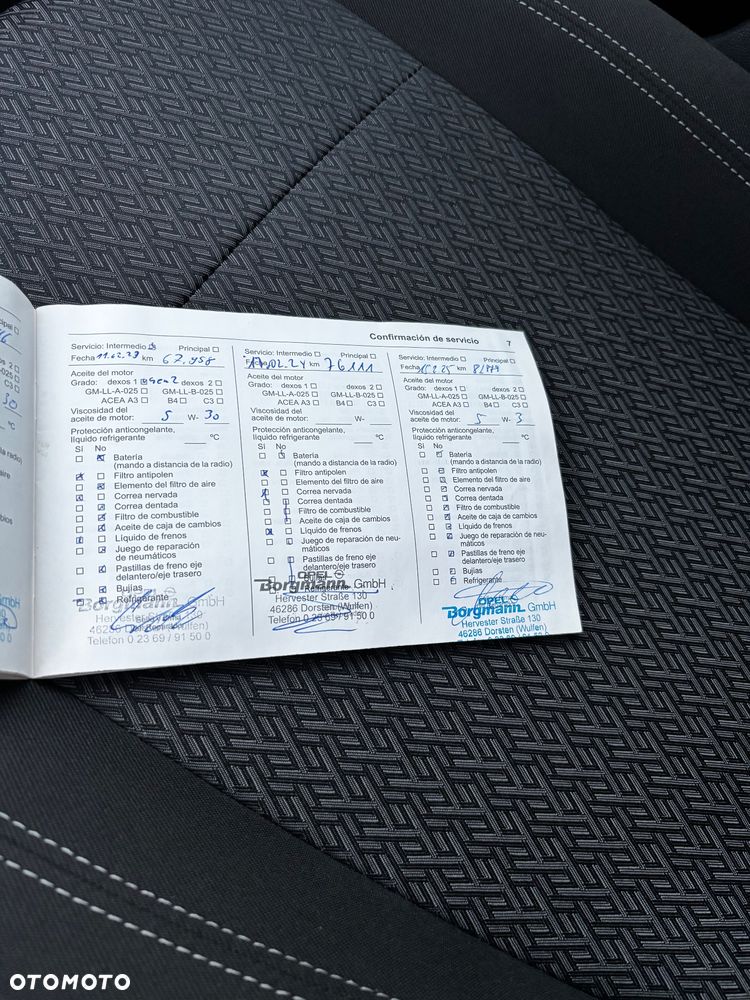 Confirmación de servicio 7
Servicio: Intermedio Principal
Fecha 11.02.23 km 67.958
Aceite del motor
Grado: dexos 1 Gen 2 dexos 2
GM-LL-A-025 GM-LL-B-025
ACEA A3 B4 C3
Viscosidad del
aceite de motor: 5 W- 30
Protección anticongelante,
líquido refrigerante °C
Sí No
Batería
(mando a distancia de la radio)
Filtro antipolen
Elemento del filtro de aire
Correa nervada
Correa dentada
Filtro de combustible
Aceite de caja de cambios
Líquido de frenos
Juego de reparación
de neumáticos
Pastillas de freno eje
delantero/eje trasero
Bujías
Refrigerante
Borgmann GmbH
Hervester
46286 Dorsten (Wulfen)
Telefon 0 23 69 / 91 50 0
Servicio: Intermedio Principal
.02.24 km 76111
Aceite del motor
Grado: dexos 1 dexos 2
GM-LL-A-025 GM-LL-B-025
ACEA A3 B4 C3
Viscosidad del
aceite de motor: W-
Protección anticongelante,
líquido refrigerante °C
Sí No
Batería
(mando a distancia de la radio)
Filtro antipolen
Elemento del filtro de aire
Correa nervada
Correa dentada
Filtro de combustible
Aceite de caja de cambios
Líquido de frenos
Juego de reparación de neu-
máticos
Pastillas de freno eje
delantero/eje trasero
OPEL
Borgmann GmbH
Hervester Straße 130
46286 Dorsten (Wulfen)
Telefon 0 23 69 / 91 50 0
Servicio: Intermedio Principal
Fecha km
Aceite del motor
Grado: dexos 1 dexos 2
GM-LL-A-025 GM-LL-B-025
ACEA A3 B4 C3
Viscosidad del
aceite de motor: 5 W- 3
Protección anticongelante,
líquido refrigerante °C
Sí No
Batería
(mando a distancia de la radio)
Filtro antipolen
Elemento del filtro de aire
Correa nervada
Correa dentada
Filtro de combustible
Aceite de caja de cambios
Líquido de frenos
Juego de reparación de neu-
máticos
Pastillas de freno eje
delantero/eje trasero
Bujías
Refrigerante
OPEL
Borgmann GmbH
Hervester Straße 130
46286 Dorsten (Wulfen)
OTOMOTO